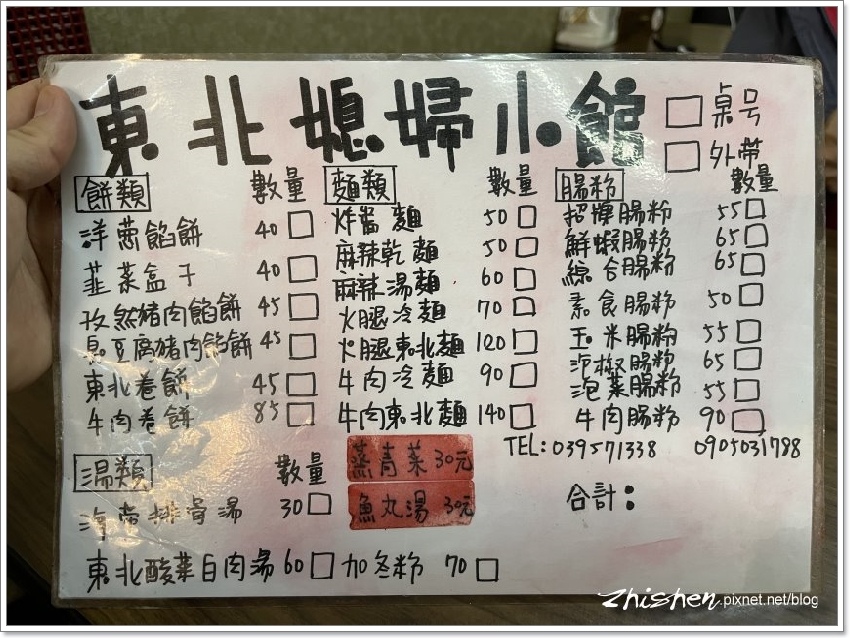 東北媳婦小館
□ 桌号
□ 外帶
餅類 數量
洋蔥餡餅 40 □
韭菜盒子 40 □
孜然豬肉餡餅 45 □
臭豆腐豬肉餡餅 45 □
東北卷餅 45 □
牛肉卷餅 85 □
湯類 數量
海帶排骨湯 30 □
東北酸菜白肉湯 60 □ 加冬粉 70 □
麵類 數量
炸醬麵 50 □
麻辣乾麵 50 □
麻辣湯麵 60 □
火腿冷麵 70 □
火腿東北麵 120 □
牛肉冷麵 90 □
牛肉東北麵 140 □
蒸青菜 30元
魚丸湯 30元
腸粉 數量
招牌腸粉 55 □
鮮蝦腸粉 65 □
綜合腸粉 65 □
素食腸粉 50 □
玉米腸粉 55 □
泡椒腸粉 65 □
泡菜腸粉 55 □
牛肉腸粉 90 □
TEL: 039571338 0905031788
合計：
zhishen.pixnet.net/blog